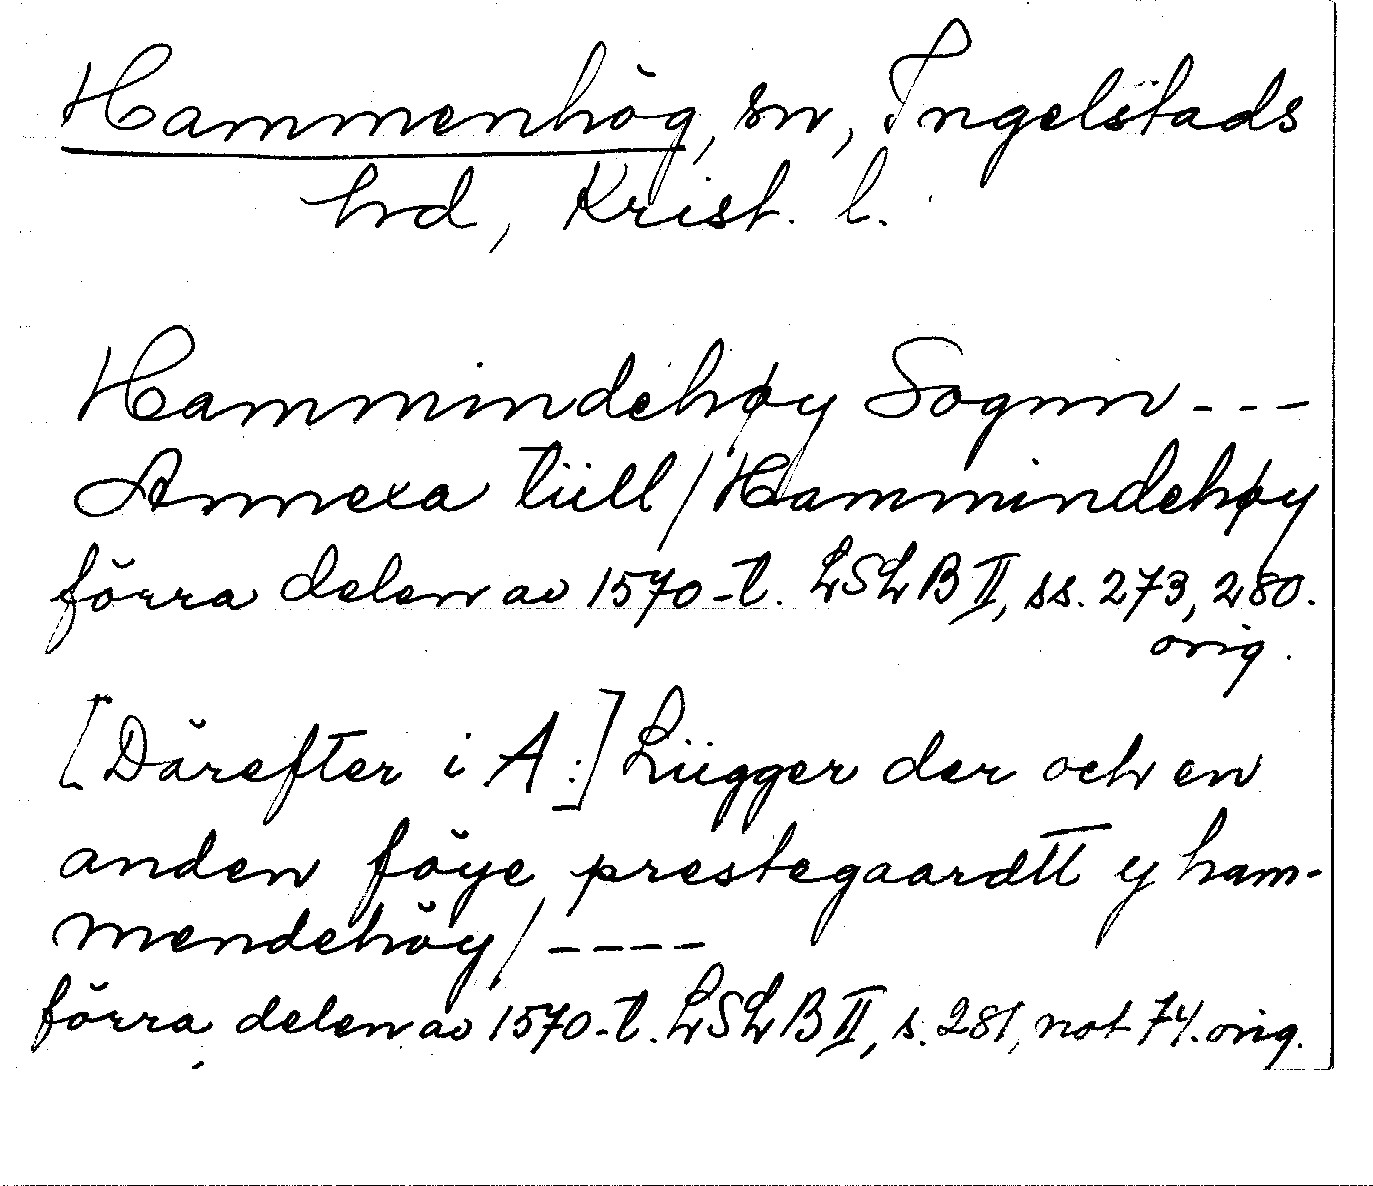 Hammenhög, sn, Ingelstads
hd, Krist. l.
Hammindehøy Sognn - - -
Annexa tüll / Hammindehøy
förra delen av 1570-t. LSLB II, ss. 273, 280.
orig.
[Därefter i A:] Lügger der och en
anden föye prestegaardtt y ham-
mendehöy / - - - -
förra delen av 1570-t. LSLB II, s. 281, not 74. orig.